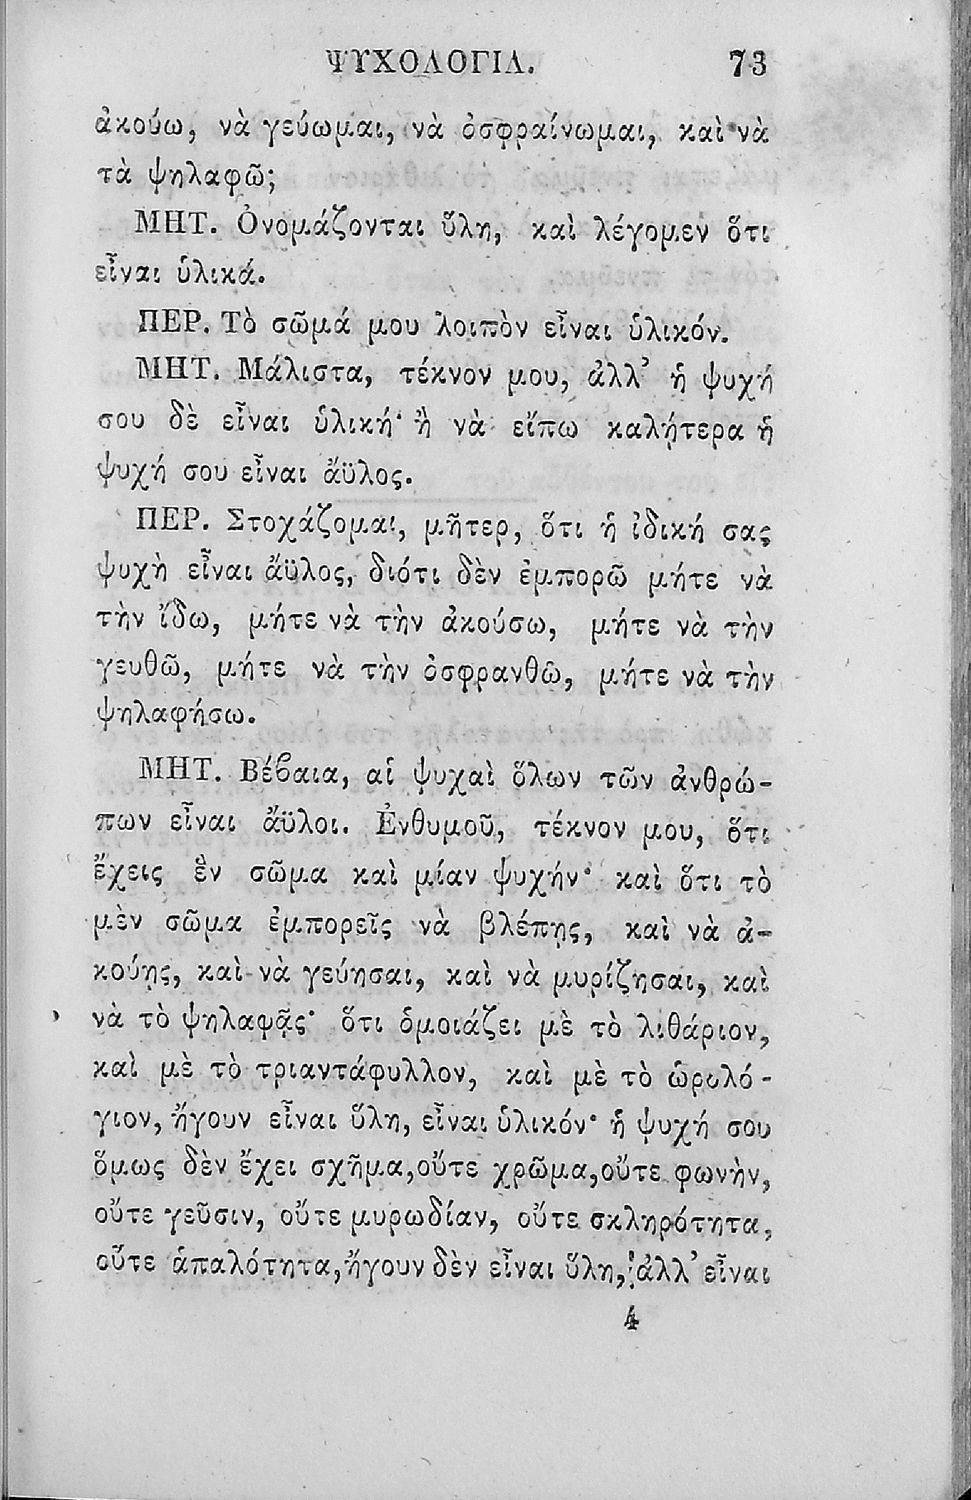 ΨΥΧΟΛΟΓΙΑ. 73
ἀκούω, νὰ γεύωμαι, νὰ ὀσφραίνωμαι, καὶ νὰ
τὰ ψηλαφῶ;
ΜΗΤ. Ὀνομάζονται ὕλη, καὶ λέγομεν ὅτι
εἶναι ὑλικά.
ΠΕΡ. Τὸ σῶμά μου λοιπὸν εἶναι ὑλικόν.
ΜΗΤ. Μάλιστα, τέκνον μου, ἀλλ’ ἡ ψυχή
σου δὲ εἶναι ὑλική· ἢ νὰ εἴπω καλήτερα ἡ
ψυχή σου εἶναι ἄϋλος.
ΠΕΡ. Στοχάζομαι, μῆτερ, ὅτι ἡ ἰδική σας
ψυχὴ εἶναι ἄϋλος, διότι δὲν ἐμπορῶ μήτε νὰ
τὴν ἴδω, μήτε νὰ τὴν ἀκούσω, μήτε νὰ τὴν
γευθῶ, μήτε νὰ τὴν ὀσφρανθῶ, μήτε νὰ τὴν
ψηλαφήσω.
ΜΗΤ. Βέϐαια, αἱ ψυχαὶ ὅλων τῶν ἀνθρώ-
πων εἶναι ἄϋλοι. Ἐνθυμοῦ, τέκνον μου, ὅτι
ἔχεις ἓν σῶμα καὶ μίαν ψυχήν· καὶ ὅτι τὸ
μὲν σῶμα ἐμπορεῖς νὰ βλέπῃς, καὶ νὰ ἀ-
κούῃς, καὶ νὰ γεύησαι, καὶ νὰ μυρίζησαι, καὶ
νὰ τὸ ψηλαφᾷς· ὅτι ὁμοιάζει μὲ τὸ λιθάριον,
καὶ μὲ τὸ τριαντάφυλλον, καὶ μὲ τὸ ὡρολό-
γιον, ἤγουν εἶναι ὕλη, εἶναι ὑλικόν· ἡ ψυχή σου
ὅμως δὲν ἔχει σχῆμα, οὔτε χρῶμα, οὔτε φωνὴν,
οὔτε γεῦσιν, οὔτε μυρωδίαν, οὔτε σκληρότητα,
οὔτε ἁπαλότητα, ἤγουν δὲν εἶναι ὕλη, ἀλλ’ εἶναι
4